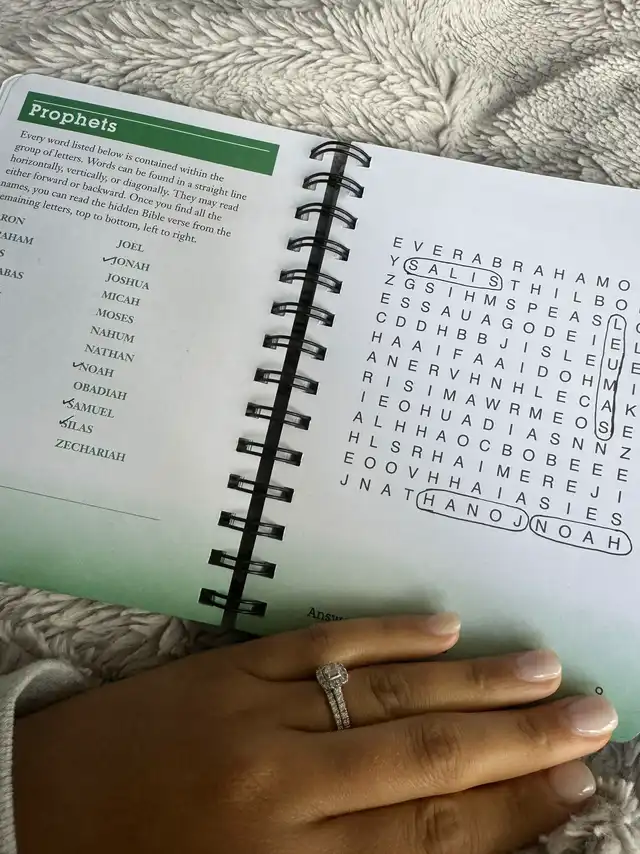 Prophets
Every word listed below is contained within the
group of letters. Words can be found in a straight line
horizontally, vertically, or diagonally. They may read
either forward or backward. Once you find all the
names, you can read the hidden Bible verse from the
emaining letters, top to bottom, left to right.
RON
AHAM
S
ABAS
JOEL
JONAH
JOSHUA
MICAH
MOSES
NAHUM
NATHAN
NOAH
OBADIAH
SAMUEL
SILAS
ZECHARIAH
E V E R A B R A H A M O
Y S A L I S T H I L B O
Z G S I H M S P E A S L
E S S A U A G O D E I E L
C D D H B B J I S L E U E
H A A I F A A I D O H M I
A N E R V H N H L E C A K
R I S I M A W R M E O S E
I E O H U A D I A S N N Z
A L H H A O C B O B E E E
H L S R H A I M E R E J I
E O O V H H A I A S I E S
J N A T H A N O J N O A H
Answ